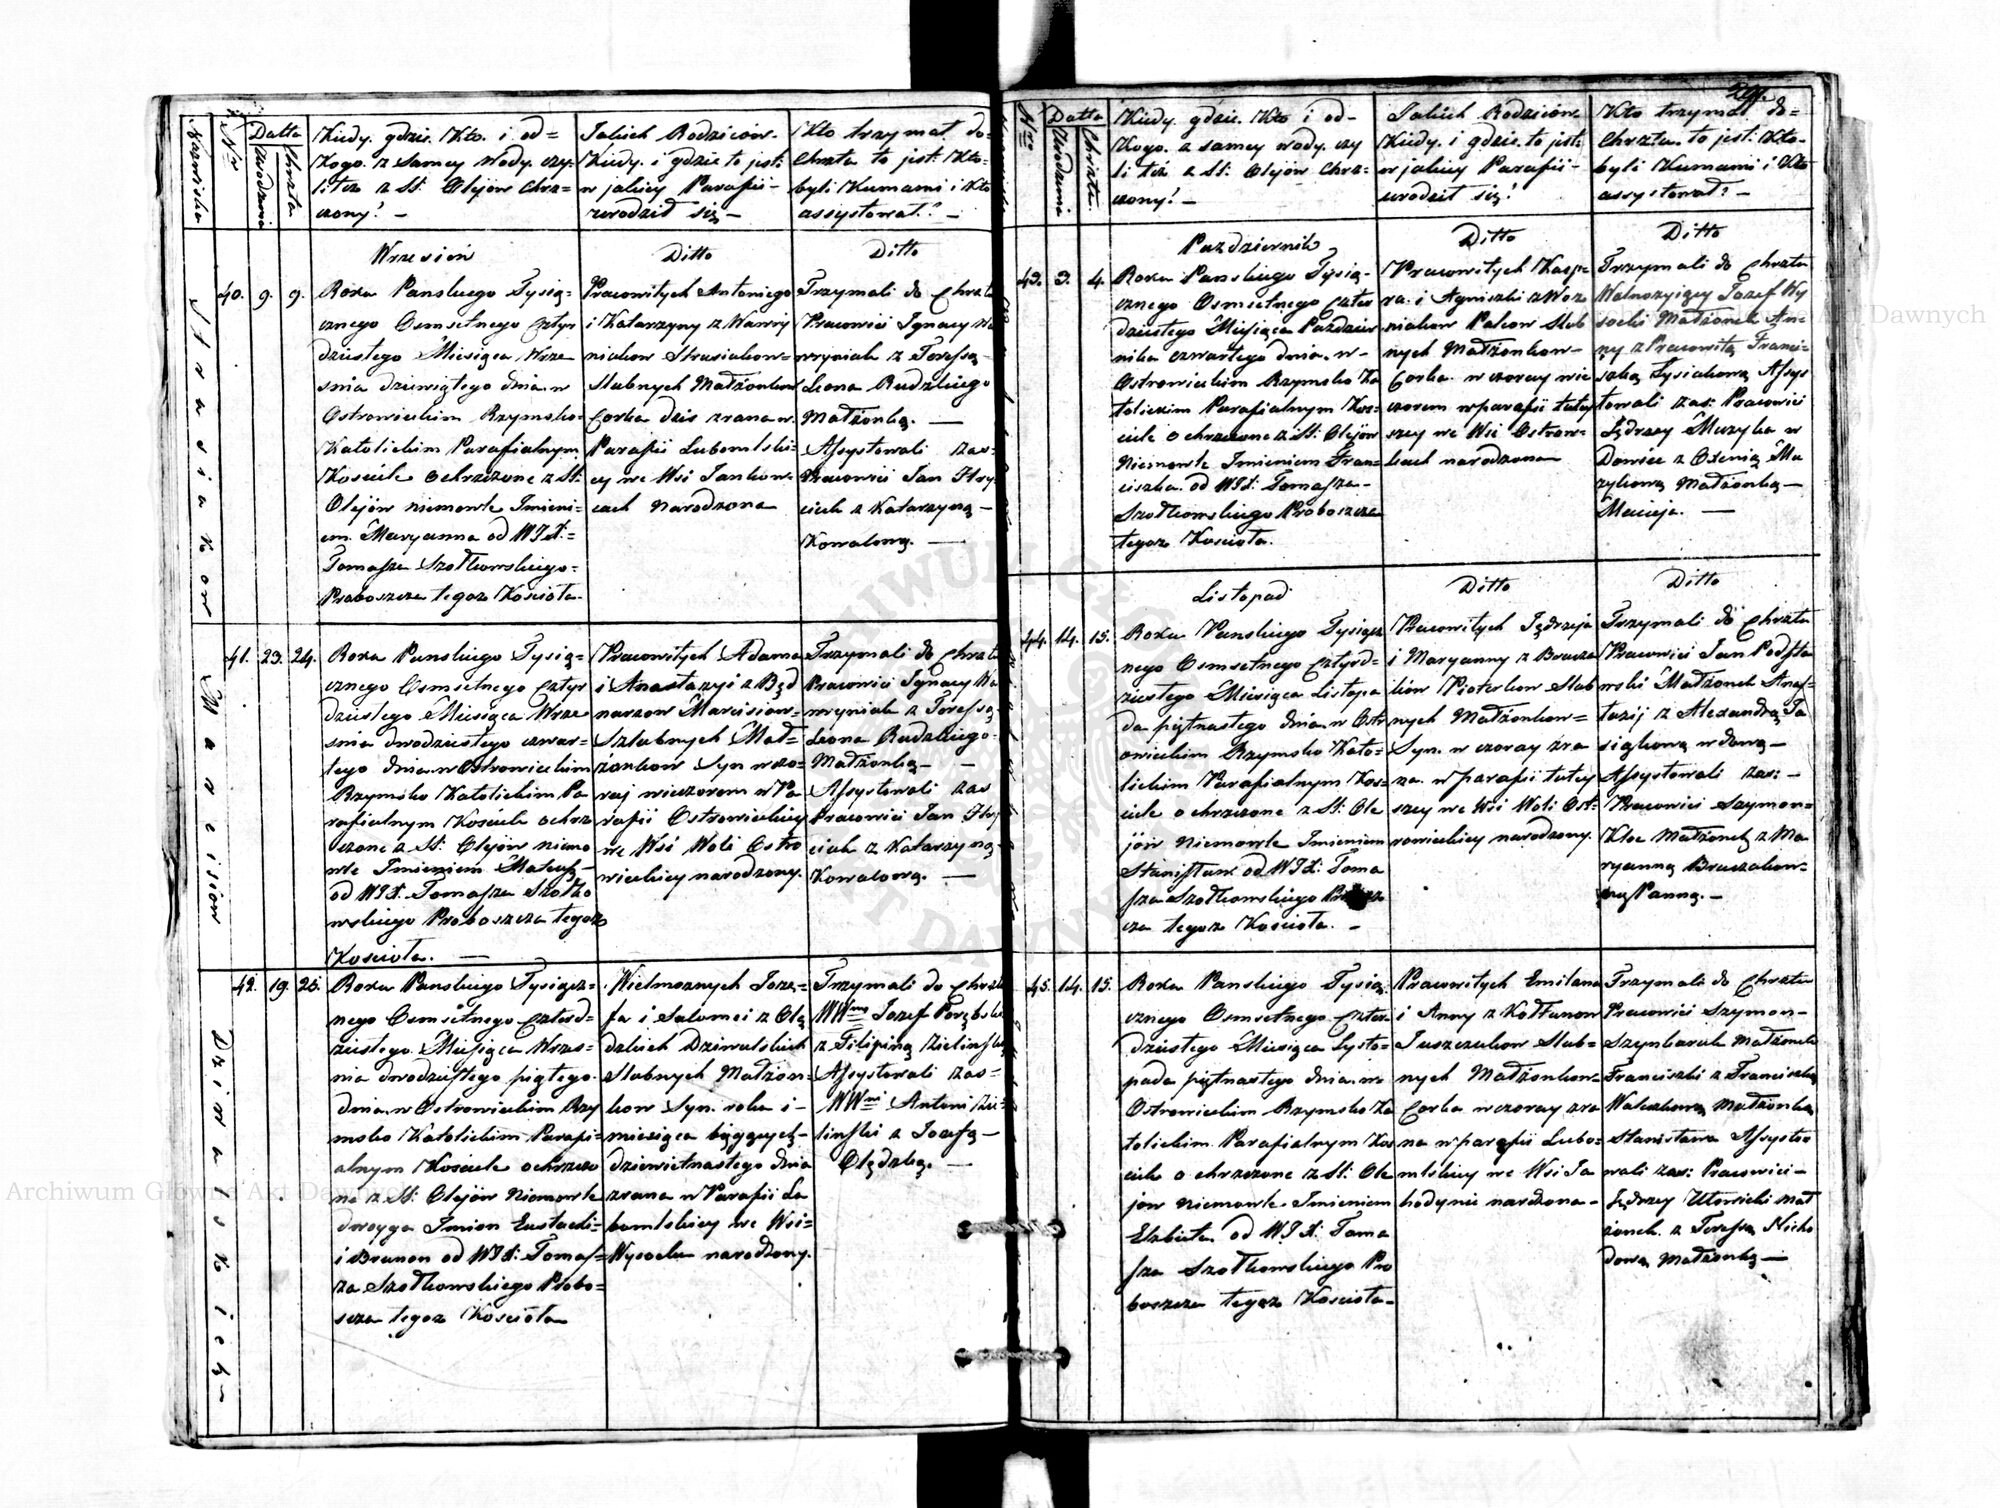 Nazwisko
Nro
Datta
Urodzenia
Chrztu
Kiedy. gdzie. Kto. i od=
Kogo. z Samey Wody. czy=
li też z SS: Olejów Chrz=
czony? —
Jakich Rodziców.
Kiedy. i gdzie to jest:
w jakiey Parafii —
urodził się —
Kto trzymał do=
Chrztu to jest: Kto=
byli Kumami i Kto
assystował? —
Wrzesień
Ditto
Ditto
Strusiakow
40. 9. 9.
Roku Panskiego Tysią=
cznego Osmsetnego Cztyr
dziestego Miesiąca Wrze
snia dziewiątego dnia w
Ostrowieckim Rzymsko=
Katolickim Parafialnym
Kosciele ochrzczone z SS:
Olejów niemowle Imieni=
em Maryanna od WJX:=
Tomasza Szołkowskiego=
Proboszcza tegoz Kościoła.
Pracowitych Antoniego
i Katarzyny z Wawry
niakow Strusiakow=
Slubnych Małżonkow
Corka dzis zrana w
Parafii Lubomlski=
ey we Wsi Jankow=
cach Narodzona
Trzymali do Chrztu
Pracowici Ignacy Wa
wryniak z Teressą —
Leona Rudzkiego
Małżonką. —
Assystowali zas=
Pracowici Jan Hry
ciuk z Katarzyną —
Kowalową. —
Marcision
41. 23. 24.
Roku Panskiego Tysią=
cznego Osmsetnego Cztyr
dziestego Miesiąca Wrze
snia dwodziestego czwar=
tego dnia w Ostrowieckim
Rzymsko Katolickim Pa
rafialnym Kosciele ochrz
czone z SS: Olejów niemo
wle Imieniem Mateusz —
od WJX: Tomasza Szołko
wskiego Proboszcza tegoz
Kościoła. —
Pracowitych Adama
i Anastazyi z Będ
narzow Marcision=
Szlubnych Mał=
zonkow Syn wczo=
raj wieczorem w Pa
rafii Ostrowieckiey
we Wsi Woli Ostro
wieckiey narodzony.
Trzymali do Chrztu
Pracowici Ignacy Wa
wryniak z Teressą
Leona Rudzkiego.
Małżonką — —
Assystowali zas
Pracowici Jan Hry
ciuk z Katarzyną
Kowalową. —
Dziwulskich —
42. 19. 25.
Roku Panskiego Tysiącz=
nego Osmsetnego Czterd=
ziestego Miesiąca Wrzes=
nia dwodziestego piątego.
dnia w Ostrowieckim Rzy
msko Katolickim Parafi=
alnym Kościele ochrzczo
ne z SS: Olejów Niemowle
dwoyga Imion Eustachi=
i Brunon od WJX: Tomas=
za Szołkowskiego Probo=
szcza tegoz Kościoła
Wielmoznych Joze=
fa i Salomei z Olę
dzkich Dziwulskich
Slubnych Małżon=
kow Syn. roku i —
miesiąca bięzących —
dziewietnastego dnia
zrana w Parafii Lu
bomlskiey we Wsi=
Wysocku narodzony.
Trzymali do Chrztu
WWny Jozef Porębski
z Filipiną Zielinską
Assystowali zas=
WWni Antoni Zie=
linski z Jozefą —
Olędzką. —
29.
Nro
Datta
Urodzenia
Chrztu.
Kiedy. gdzie. Kto i od-
Kogo. z samey wody. czy
li też z SS: Olejów Chrz=
czony? —
Jakich Rodziców
Kiedy. i gdzie to jest:
w jakiey Parafii —
urodził się?
Kto trzymał do=
Chrztu. to jest: Kto=
byli Kumami i Kto
assystował? —
Pazdziernik
Ditto
Ditto
43. 3. 4.
Roku Panskiego Tysią=
cznego Osmsetnego Czter
dziestego Miesiąca Pazdzier
nika czwartego dnia. w —
Ostrowieckim Rzymsko Ka
tolickim Parafialnym Koś=
ciele ochrzczone z SS. Olejów
Niemowle Imieniem Fran=
ciszka. od WJX: Tomasza —
Szołkowskiego Proboszcza
tegoz Kościoła.
Pracowitych Kasp=
ra. i Agniszki z Woz
niakow Palcow Slub
nych Małżonkow —
Corka w czoray wie
czorem w parafii tutey
szey we Wsi Ostrow=
kach narodzona
Trzymali do Chrztu
Wolnozyiący Jozef Wy
socki Małżonek An=
ny z Pracowitą Franci=
szką Łysiakową Assys
towali zas: Pracowici
Jędrzey Muzyka w
Dowiec z Oxenią Mu
zykową Małżonką —
Macieja. —
Listopad
Ditto
Ditto
44. 14. 15.
Roku Panskiego Tysiącz
nego Osmsetnego Cztyrd=
ziestego Miesiąca Listopa
da piętnastego dnia w Ostr
owieckim Rzymsko Kato=
lickim Parafialnym Koś=
ciele ochrzczone z SS. Ole
jów Niemowle Imieniem
Stanisław od WJX: Toma
sza Szołkowskiego
cza tegoz Kościoła. —
Pracowitych Jędrzeja
i Maryanny z Bracza
kow Pioterkow Slub
nych Małżonkow=
Syn. w czoray zra
na. w parafii tutey
szey we Wsi Woli Ost=
rowieckiey narodzony.
Trzymali do Chrztu
Pracowici Jan Podsta
wski Małżonek Anas=
tazij z Alexandrą Ja
siąkową wdową —
Assystowali zas: —
Pracowici Szymon=
Kloc Małżonek z Ma
ryanną Braczakow=
Panną. —
45. 14. 15.
Roku Panskiego Tysią
cznego Osmsetnego Czter=
dziestego Miesiąca Lysto=
pada piętnastego dnia. w
Ostrowieckim Rzymsko Ka
tolickim Parafialnym Koś
ciele ochrzczone z SS: Ole
jow niemowle Imieniem
Elzbieta. od WJX: Toma
sza Szołkowskiego Pro
boszcza tegoz Kościoła —
Pracowitych Emilana
i Anny z Kołtunow
Juszczukow Slub=
nych Małżonkow=
Corka wczoray zra
na w parafii Lubo=
mlskiey we Wsi Ja
hodynie narodzona —
Trzymali do Chrztu
Pracowici Szymon —
Szynkaruk Małżonek
Franciszki z Franciszką
Walczukową Małżonką
Stanisława Assysto
wali zas: Pracowici —
Jędrzey Utowicki Mał
żonek. z Teressą Nicho
dową Małżonką —
Archiwum Główne Akt Dawnych